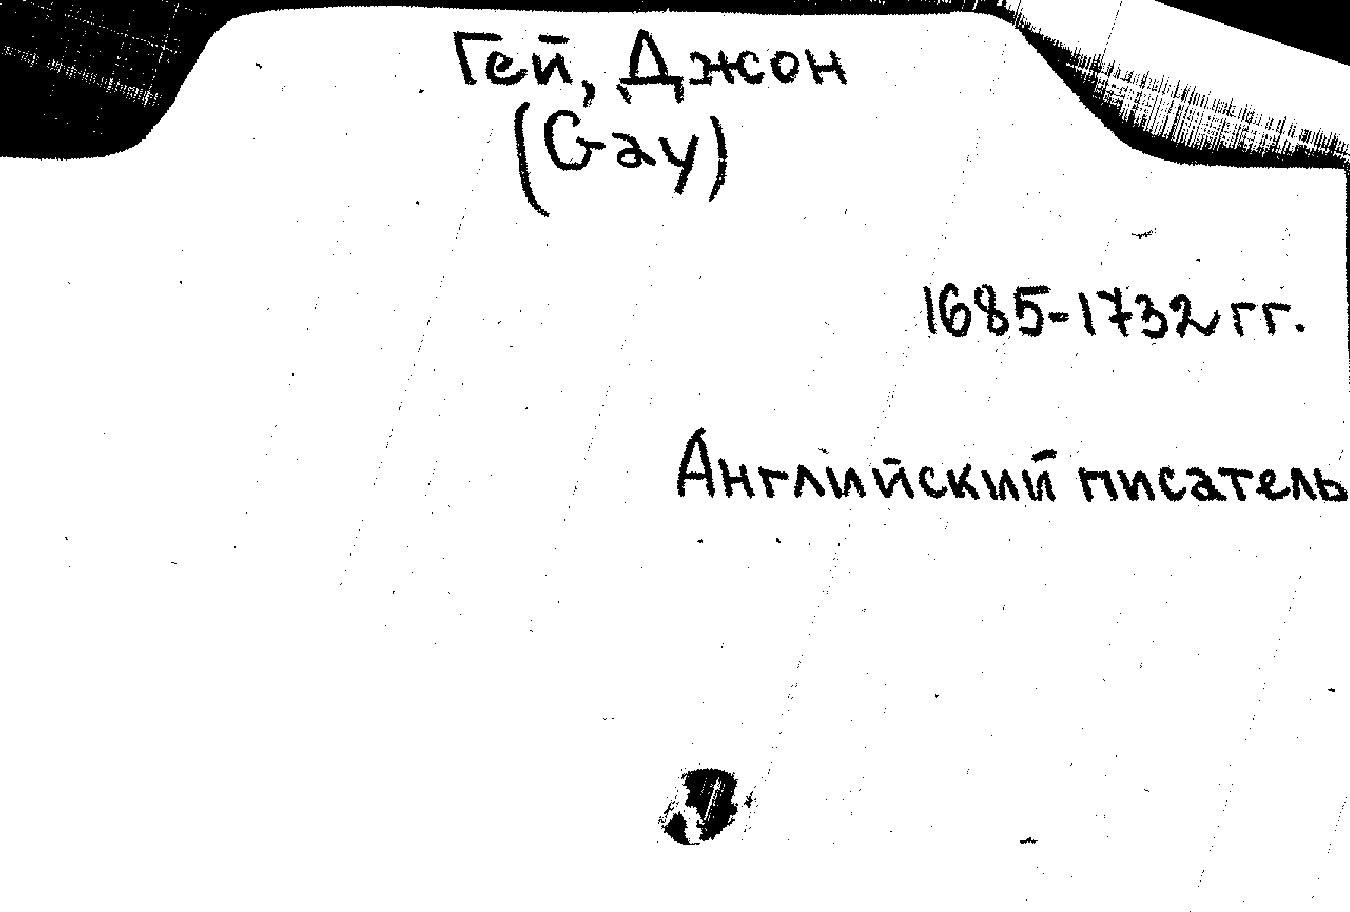 Гей, Джон
(Gay)
1685-1732 гг.
Английский писатель